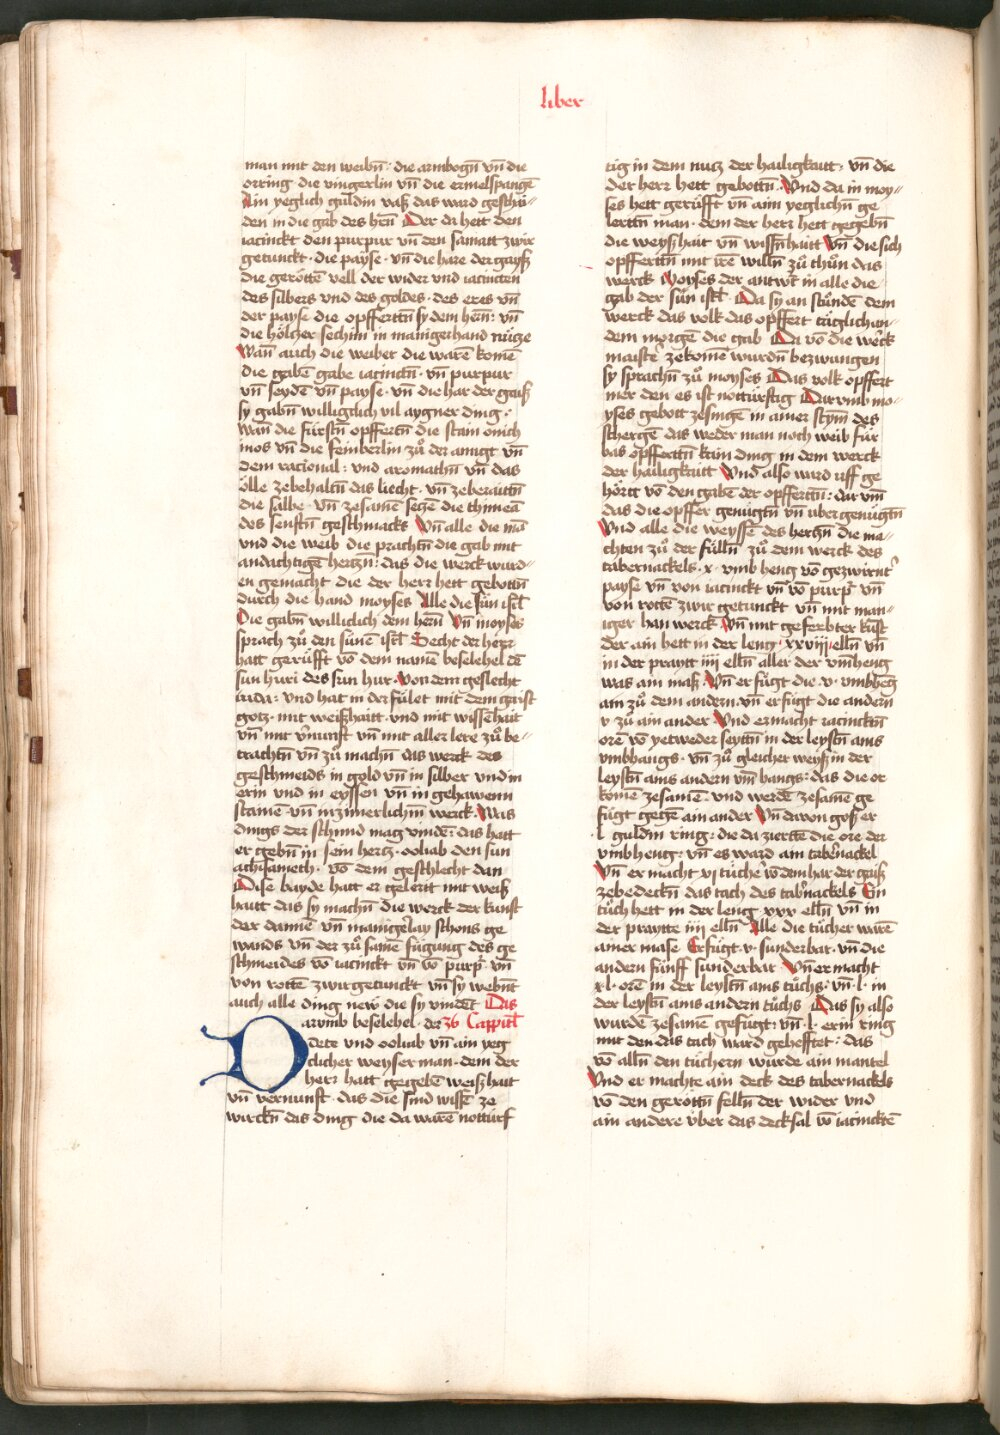 liber
man mit den weibn̄ · die armbogn̄ vn̄ die
orring die vingerlin vn̄ die ermelspangē
Ain yeglich guldin vaß das ward geschai
den in die gab des hrn̄ Der da hett den
iacinckt den purpur vn̄ den samatt zwir
getunckt · die payse · vn̄ die hare der gaiß
die gerötten vell der wider vnd iacincten
des silbers vnd des goldes · des eres vn̄
der payse die opffertn̄ sy dem hern̄ : vn̄
die höltzer sechim in manigerhand nütze
Wan̄ auch die weiber die warē komē
die gabē gabē iacinctn̄ · vn̄ purpur
vn̄ seydē vn̄ payse · vn̄ die har der gaiß
sy gabn̄ willigclich vil aygner ding ·
wan̄ die fürstn̄ opffertn̄ die stain onich
inos vn̄ die feinberlin zů der anigt vn̄
dem racional : vnd aromathn̄ vn̄ das
ölle zebehaltn̄ das liecht · vn̄ zeberaittn̄
die salbe · vn̄ zesamē seczē die thimea
des senftn̄ geschmacks Vn̄ alle die mā
vnd die weib die prachtn̄ die gab mit
andachtigē hertzn̄ : das die werck wurd
en gemacht die der herr hett gebottn̄
durch die hand moyses Alle die sün isrl̄
Die gabn̄ williclich dem hern̄ Vn̄ moyses
sprach zů den sünē isrl̄ Secht der herr
hatt gerüfft vō dem namē beselehel dē
sun huri des sun hur · Von dem geslecht
iuda : vnd hat in der fület mit dem gaist
gotz · mit weißhaitt · vnd mit wissēhait
vn̄ mit v̄nunfft vn̄ mit aller lere zů be
trachtn̄ vn̄ zů machn̄ das werck des
geschmeids in gold vn̄ in silber vnd in
erin vnd in eyssen vn̄ in gehawenn
stainē · vn̄ in zimerlichm̄ werck · Was
dings der schmid mag vindē : das hatt
er gebn̄ in sein hertz · ooliab den sun
achisameth · vō dem geschlecht dan
Dise bayde hatt er gelerit mit weiß
haitt das sy machn̄ die werck der kunst
der damē vn̄ manigerlay schons ge
wands vn̄ der zů samē fügung des ge
schmeides vō iacinckt vn̄ vō purpr̄ · vn̄
von rottē zwir getunckt vn̄ sy webnt
auch alle ding new die sy vindēt Das
arvmb beselehel · der 36 Cappitl̄
Dete vnd ooliab vn̄ ain yeg
clicher weyser man · dem der
herr hatt gegebē weißhait
vn̄ vernunft · das die sind wissē ze
wirckn̄ das ding die da warē notturf
tig in dem nutz der hailigkaitt · vn̄ die
der herr hett gebottn̄ · Vnd da in moy
ses hett gerüfft vn̄ aim yeglichn̄ ge
lerttn̄ man · dem der herr hett gegebn̄
die weyßhait vn̄ wissn̄haitt Vn̄ die sich
opffertn̄ mit irē willn̄ zů thůn das
werck Moyses der antwt̄ in alle die
gab der sün isrl̄ · Da sy an stündē dem
werck das volk das opffert täglich an
dem morgē die gab Da vō die wērck
maister zekomē wurdn̄ bezwangen
sy sprachn̄ zů moyses Das volk opffert
mer den es ist notturftig Darvmb mo
yses gebott zesingē in ainer stym̄ des
schergē das weder man noch weib für
bas opffertn̄ kain ding in dem werck
der hailigkaitt Vnd also ward vff ge
hörtt vō den gabē der opffertn̄ : dar vm̄
das die opffer genügtn̄ vn̄ vber genügtn̄
Vnd alle die weyssē des hertzn̄ die ma
chten zů der fülln̄ zů dem werck des
tabernackels · x · vmb heng vō gezwirnt
payse vn̄ von iacinckt vn̄ vō purpr̄ vn̄
von rottē zwir getunckt vn̄ mit man
iger han werck Vn̄ mit geferbter kust̄
der ain hett in der leng · xxviij elln̄ vn̄
in der praytt iiij elln̄ aller der vm̄heng
was ain maß · Vn̄ er fügt die · v · vmbhēg
ain zů dem andern · vn̄ er fügt die andern
v zů ain ander Vnd er macht iacincktn̄
orē vō yetweder seyttn̄ in der leystn̄ ains
vmbhangs · vn̄ zů gleicher weyß in der
leystn̄ ains andern vm̄hangs : das die or
komē zesamē · vnd werdē zesamē ge
fügt gegē ain ander Vn̄ davon goß er
· l · guldin ring : die da ziertē die ore der
vmbheng : vn̄ es ward ain tabern̄ackel
Vn̄ er macht vj tücher vō dem har der gaiß
zebedeckn̄ das tach des tabn̄ackels Ein
tůch hett in der leng xxx elln̄ vn̄ in
der praytte iiij elln̄ Alle die tücher warē
ainer mase Er fügt · v · sunderbar · vn̄ die
andern fünff sunderbar Vn̄ er macht
xl · orē in der leystn̄ ains tůchs · vn̄ · l · in
der leystn̄ ains andern tůchs Das sy also
wurdē zesamē gefügt : vn̄ · l · erin ring
mit den das tach ward gehefftet : das
vō alln̄ den tüchern wurde ain mantel
Vnd er machte ain deck des tabernackels
vō den geröttn̄ felln̄ der wider vnd
ain andere vber das decksal vō iacincktē